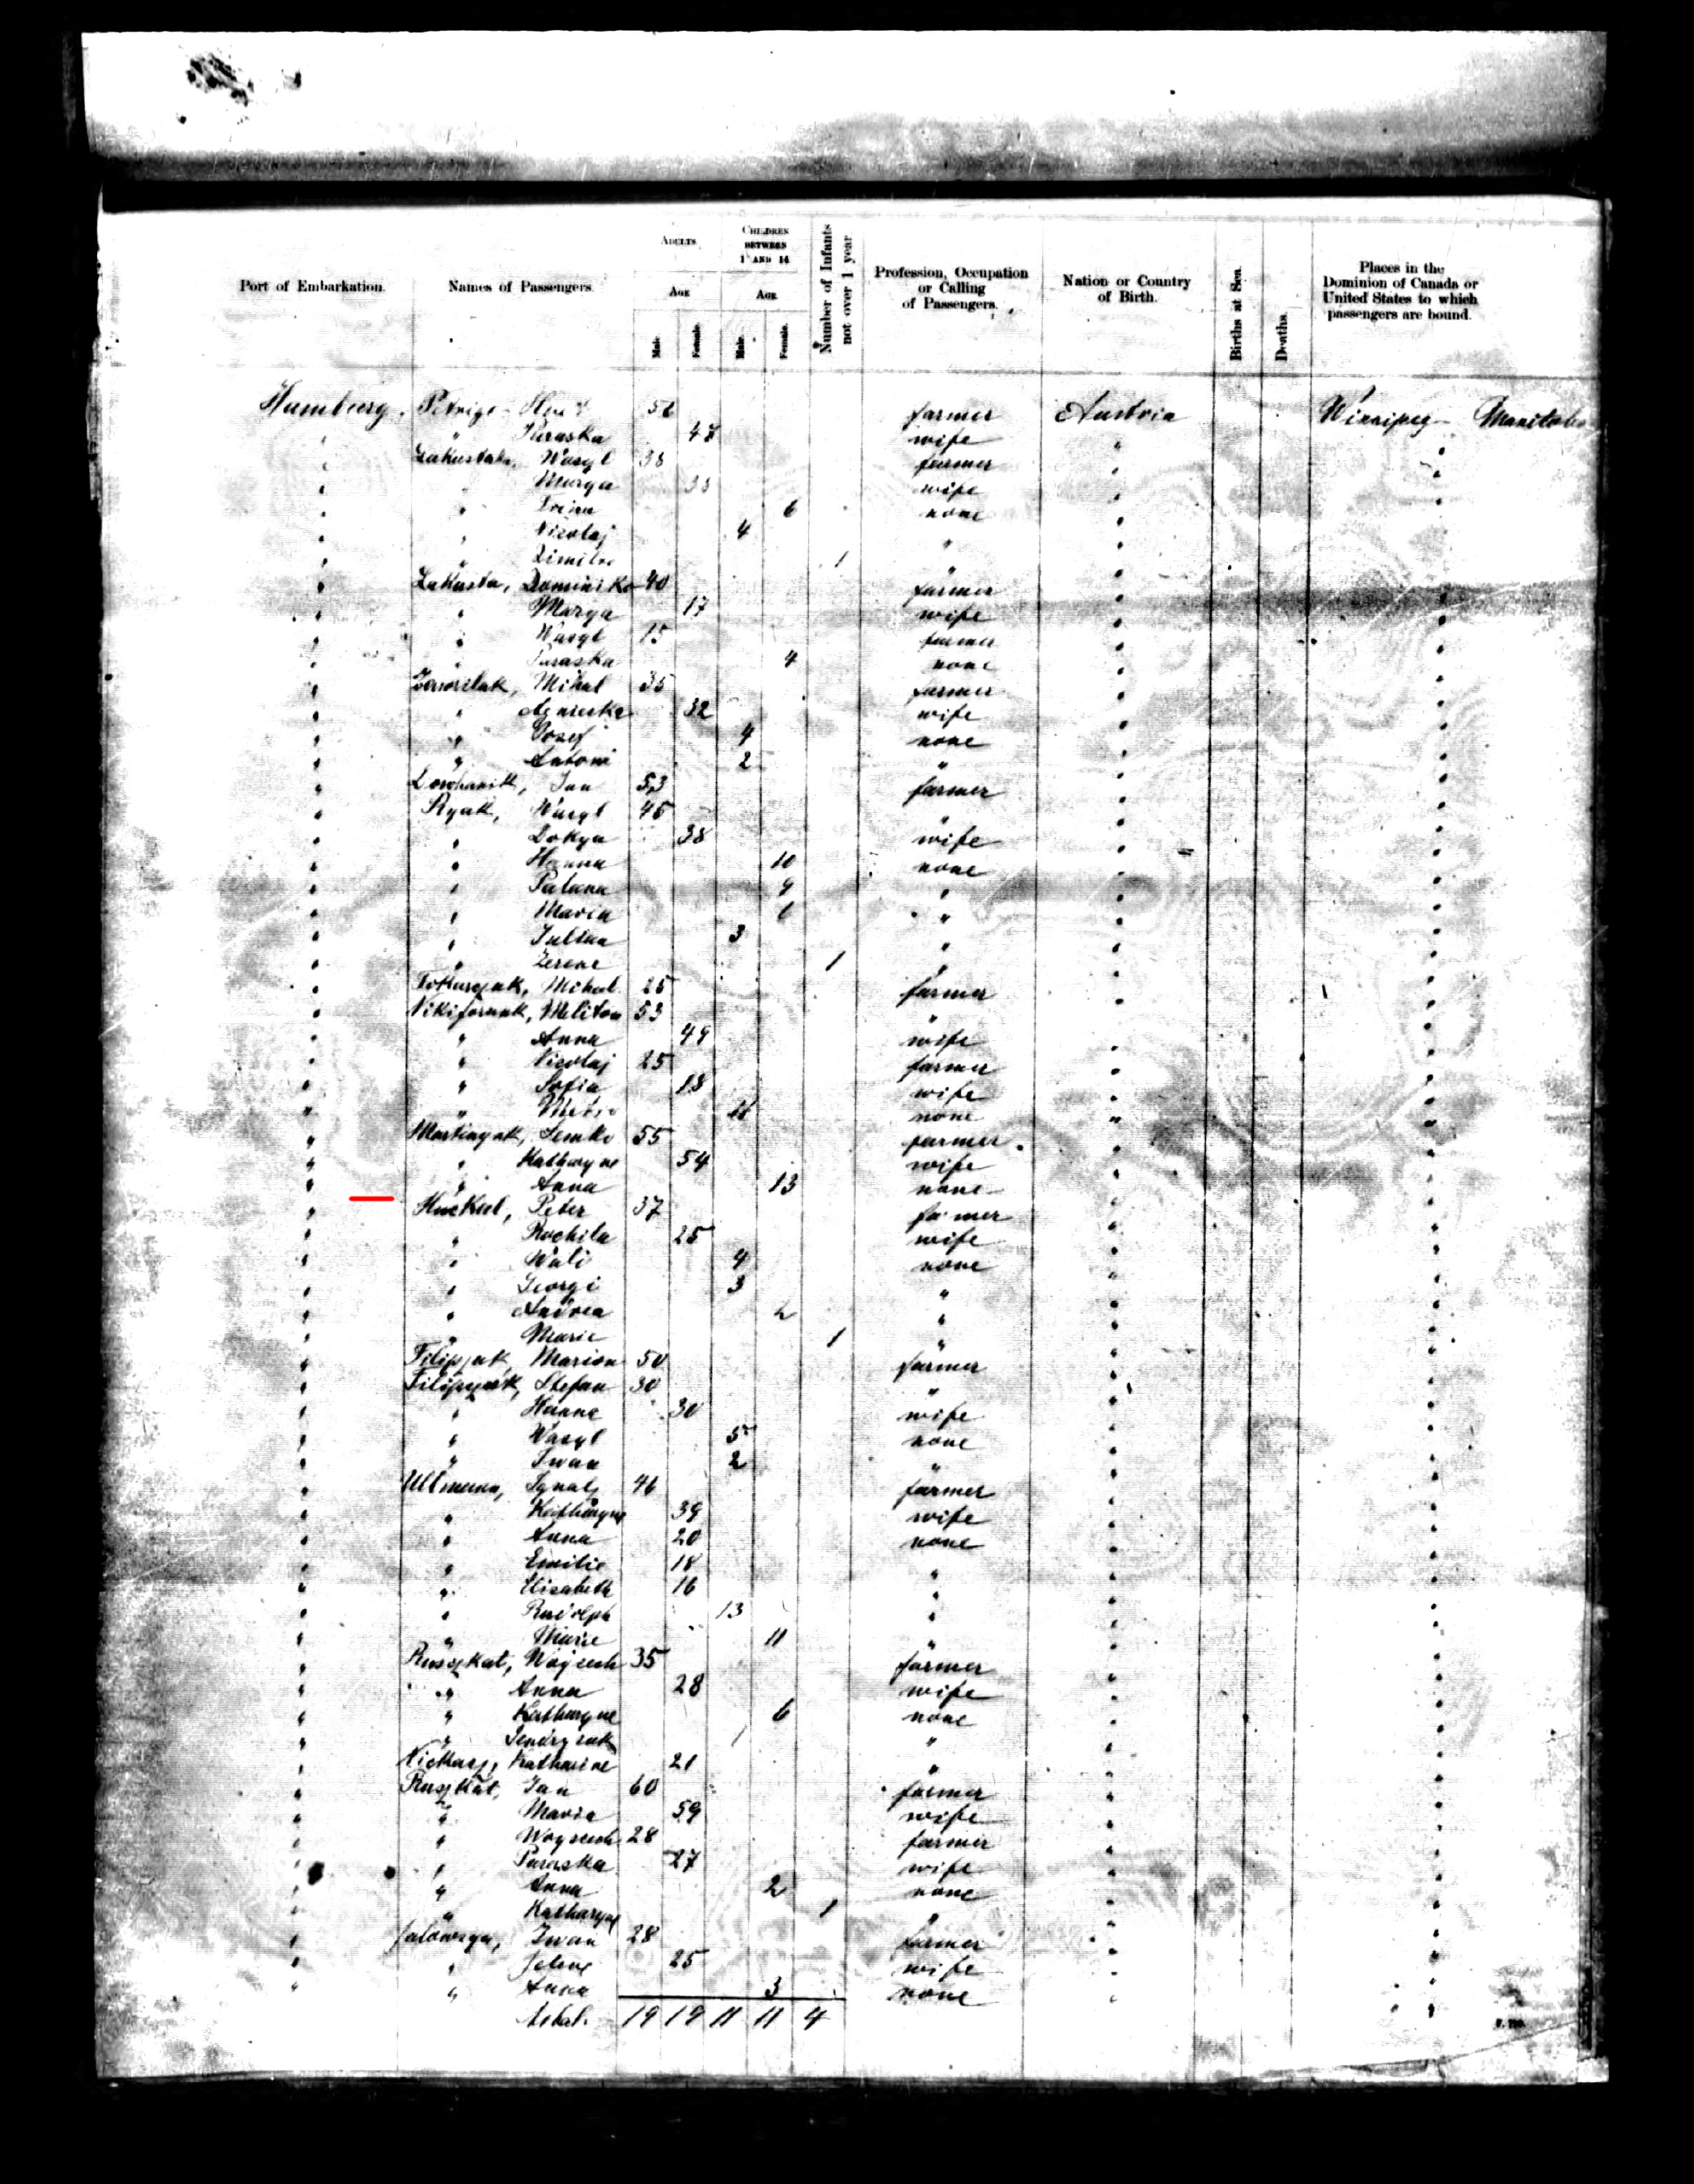 Port of Embarkation. Names of Passengers. ADULTS. CHILDREN BETWEEN 1 AND 14 Number of Infants not over 1 year Profession, Occupation or Calling of Passengers. Nation or Country of Birth. Births at Sea. Deaths. Places in the Dominion of Canada or United States to which passengers are bound.
AGE AGE
Male. Female. Male. Female.
Hamburg. farmer Austria Winnipeg Manitoba
" " Paraska 47 wife " "
" Wasyl 38 farmer " "
" " Marya wife " "
" " Irina 6 none " "
" " Nicolaj 4 " " "
" " Dimitro 1 " " "
" Lakusta, Dominiko 40 farmer " "
" " Marya 17 wife " "
" " Wasyl 15 farmer " "
" " Paraska 4 none " "
" Mihal 35 farmer " "
" " Agnieska 32 wife " "
" " Josef 4 none " "
" " Antoni 2 " " "
" Jan 53 farmer " "
" Wasyl 45 " " "
" " Dokya 38 wife " "
" " Hanna 10 none " "
" " 9 " " "
" " Maria 6 " " "
" " Julian 3 " " "
" " 1 " " "
" Tokaryuk, Mihal 25 farmer " "
" Nikiforuuk, Meliton 53 " " "
" " Anna 49 wife " "
" " Nicolaj 25 farmer " "
" " Sofia 18 wife " "
" " none " "
" Martinyuk, Semko 55 farmer " "
" " Katharyne 54 wife " "
" " Anna 13 none " "
" Huckul, Peter 37 farmer " "
" " Rachila 25 wife " "
" " Wali 4 none " "
" " Georgi 3 " " "
" " Andrea 2 " " "
" " Marie 1 " " "
" Filipjuk, Marion 50 farmer " "
" Filipyuk, Stefan 30 " " "
" " Hanna 30 wife " "
" " Wasyl 5 none " "
" " Iwan 2 " " "
" Ullmann, Ignatz 46 farmer " "
" " Katharyne 39 wife " "
" " Anna 20 none " "
" " Emilie 18 " " "
" " Elisabeth 16 " " "
" " Rudolph 13 " " "
" " Marie 11 " " "
" Russkat, Woyciech 35 farmer " "
" " Anna 28 wife " "
" " Katharyne 6 none " "
" " 1 " " "
" Katharine 21 " " "
" Jan 60 farmer " "
" " Maria 59 wife " "
" " Woyciech 28 farmer " "
" " Paraska 27 wife " "
" " Anna 2 none " "
" " Katharyne 1 " " "
" Iwan 28 farmer " "
" " Jelene 25 wife " "
" " Anna 3 none " "
Total. 19 19 11 11 4